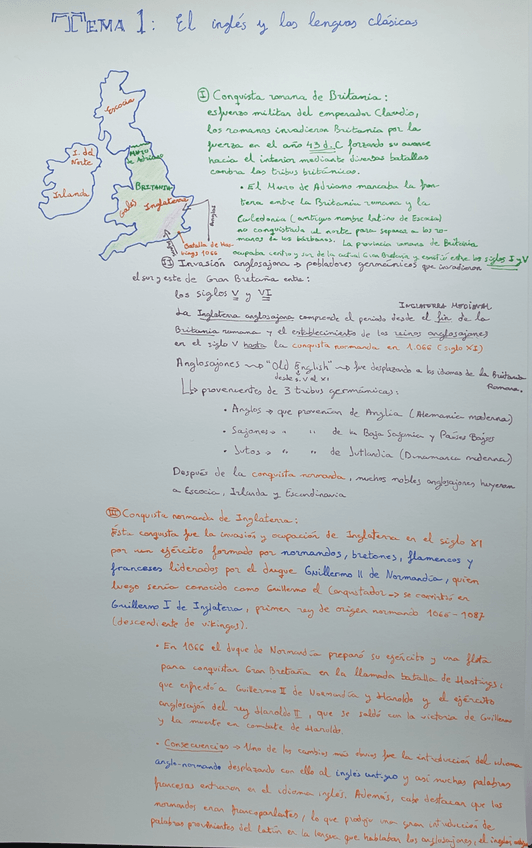 TEMA 1: El inglés y las lenguas clásicas
Escocia
I. del Norte
Irlanda
Muro de Adriano
BRITANIA
Gales
Inglaterra
Anglos
Batalla de Has-
tings 1066
I Conquista romana de Britania:
esfuerzo militar del emperador Claudio,
los romanos invadieron Britania por la
fuerza en el año 43 d.C forzando su avance
hacia el interior mediante diversas batallas
contra las tribus británicas.
• El Muro de Adriano marcaba la fron-
tera entre la Britania romana y la
Caledonia (antiguo nombre latino de Escocia)
no conquistada al norte para separar a los ro-
manos de los bárbaros. La provincia romana de Britania
ocupaba centro y sur de la actual Gran Bretaña y existió entre los siglos I y V
II Invasión anglosajona → pobladores germánicos que invadieron
el sur y este de Gran Bretaña entre:
los siglos V y VI
INGLATERRA MEDIEVAL
La Inglaterra anglosajona comprende el periodo desde el fin de la
Britania romana y el establecimiento de los reinos anglosajones
en el siglo V hasta la conquista normanda en 1.066 (siglo XI)
Anglosajones → "Old English" → fue desplazando a los idiomas de la Britania
desde s. V al XI
Romana.
→ provenientes de 3 tribus germánicas:
• Anglos → que provenían de Anglia (Alemania moderna)
• Sajones → " " de la Baja Sajonia y Países Bajos
• Jutos → " " de Jutlandia (Dinamarca moderna)
Después de la conquista normanda, muchos nobles anglosajones huyeron
a Escocia, Irlanda y Escandinavia
III Conquista normanda de Inglaterra:
Esta conquista fue la invasión y ocupación de Inglaterra en el siglo XI
por un ejército formado por normandos, bretones, flamencos y
franceses liderados por el duque Guillermo II de Normandía, quien
luego sería conocido como Guillermo el Conquistador → se convirtió en
Guillermo I de Inglaterra, primer rey de origen normando 1066-1087
(descendiente de vikingos).
• En 1066 el duque de Normandía preparó su ejército y una flota
para conquistar Gran Bretaña en la llamada batalla de Hastings:
que enfrentó a Guillermo II de Normandía y Haroldo y el ejército
anglosajón del rey Haroldo II, que se saldó con la victoria de Guillermo
y la muerte en combate de Haroldo.
• Consecuencias → Uno de los cambios más obvios fue la introducción del idioma
anglo-normando desplazando con ello al inglés antiguo y así muchas palabras
francesas entraron en el idioma inglés. Además, cabe destacar que los
normandos eran francoparlantes, lo que produjo una gran introducción de
palabras provenientes del latín en la lengua que hablaban los anglosajones, el inglés